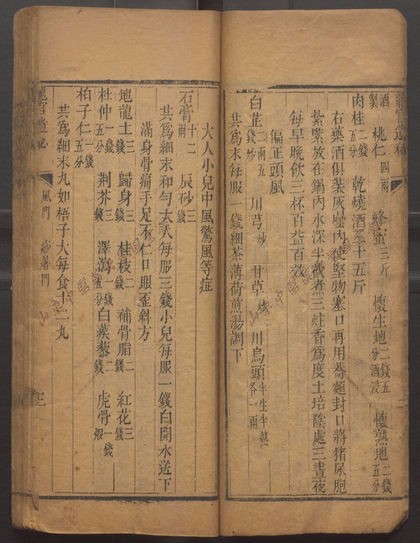 酒製 桃仁四兩 蜂蜜三斤 懷生地二錢五分酒浸 懷熟地二錢五分
肉桂二錢五分 乾燒酒五十五斤
右藥酒俱裝灰罈內 堅物塞口再用蕎麵封口將猪尿胞
紮緊放在鍋內水深半截煮三炷香爲度土培陰處三晝夜
每早晚飲三杯百益百效
偏正頭風
白芷二兩五錢炒 川芎炒 甘草 川烏頭半生半熟各一兩
共爲末每服一錢細茶薄荷煎湯調下
大人小兒中風驚風等症
石膏十二兩 辰砂錢
共爲細末和勻大人每服三錢小兒每服一錢白開水送下
滿身骨痛手足不仁口眼歪斜方
地龍土三錢 歸身三錢 桂枝二錢 補骨脂二錢 紅花三錢
杜仲一錢五分 荆芥二錢 澤瀉一錢五分 白蒺藜二錢 虎骨一錢煅
柏子仁一錢五分
共爲細末丸如梧子大每食十二丸
風門